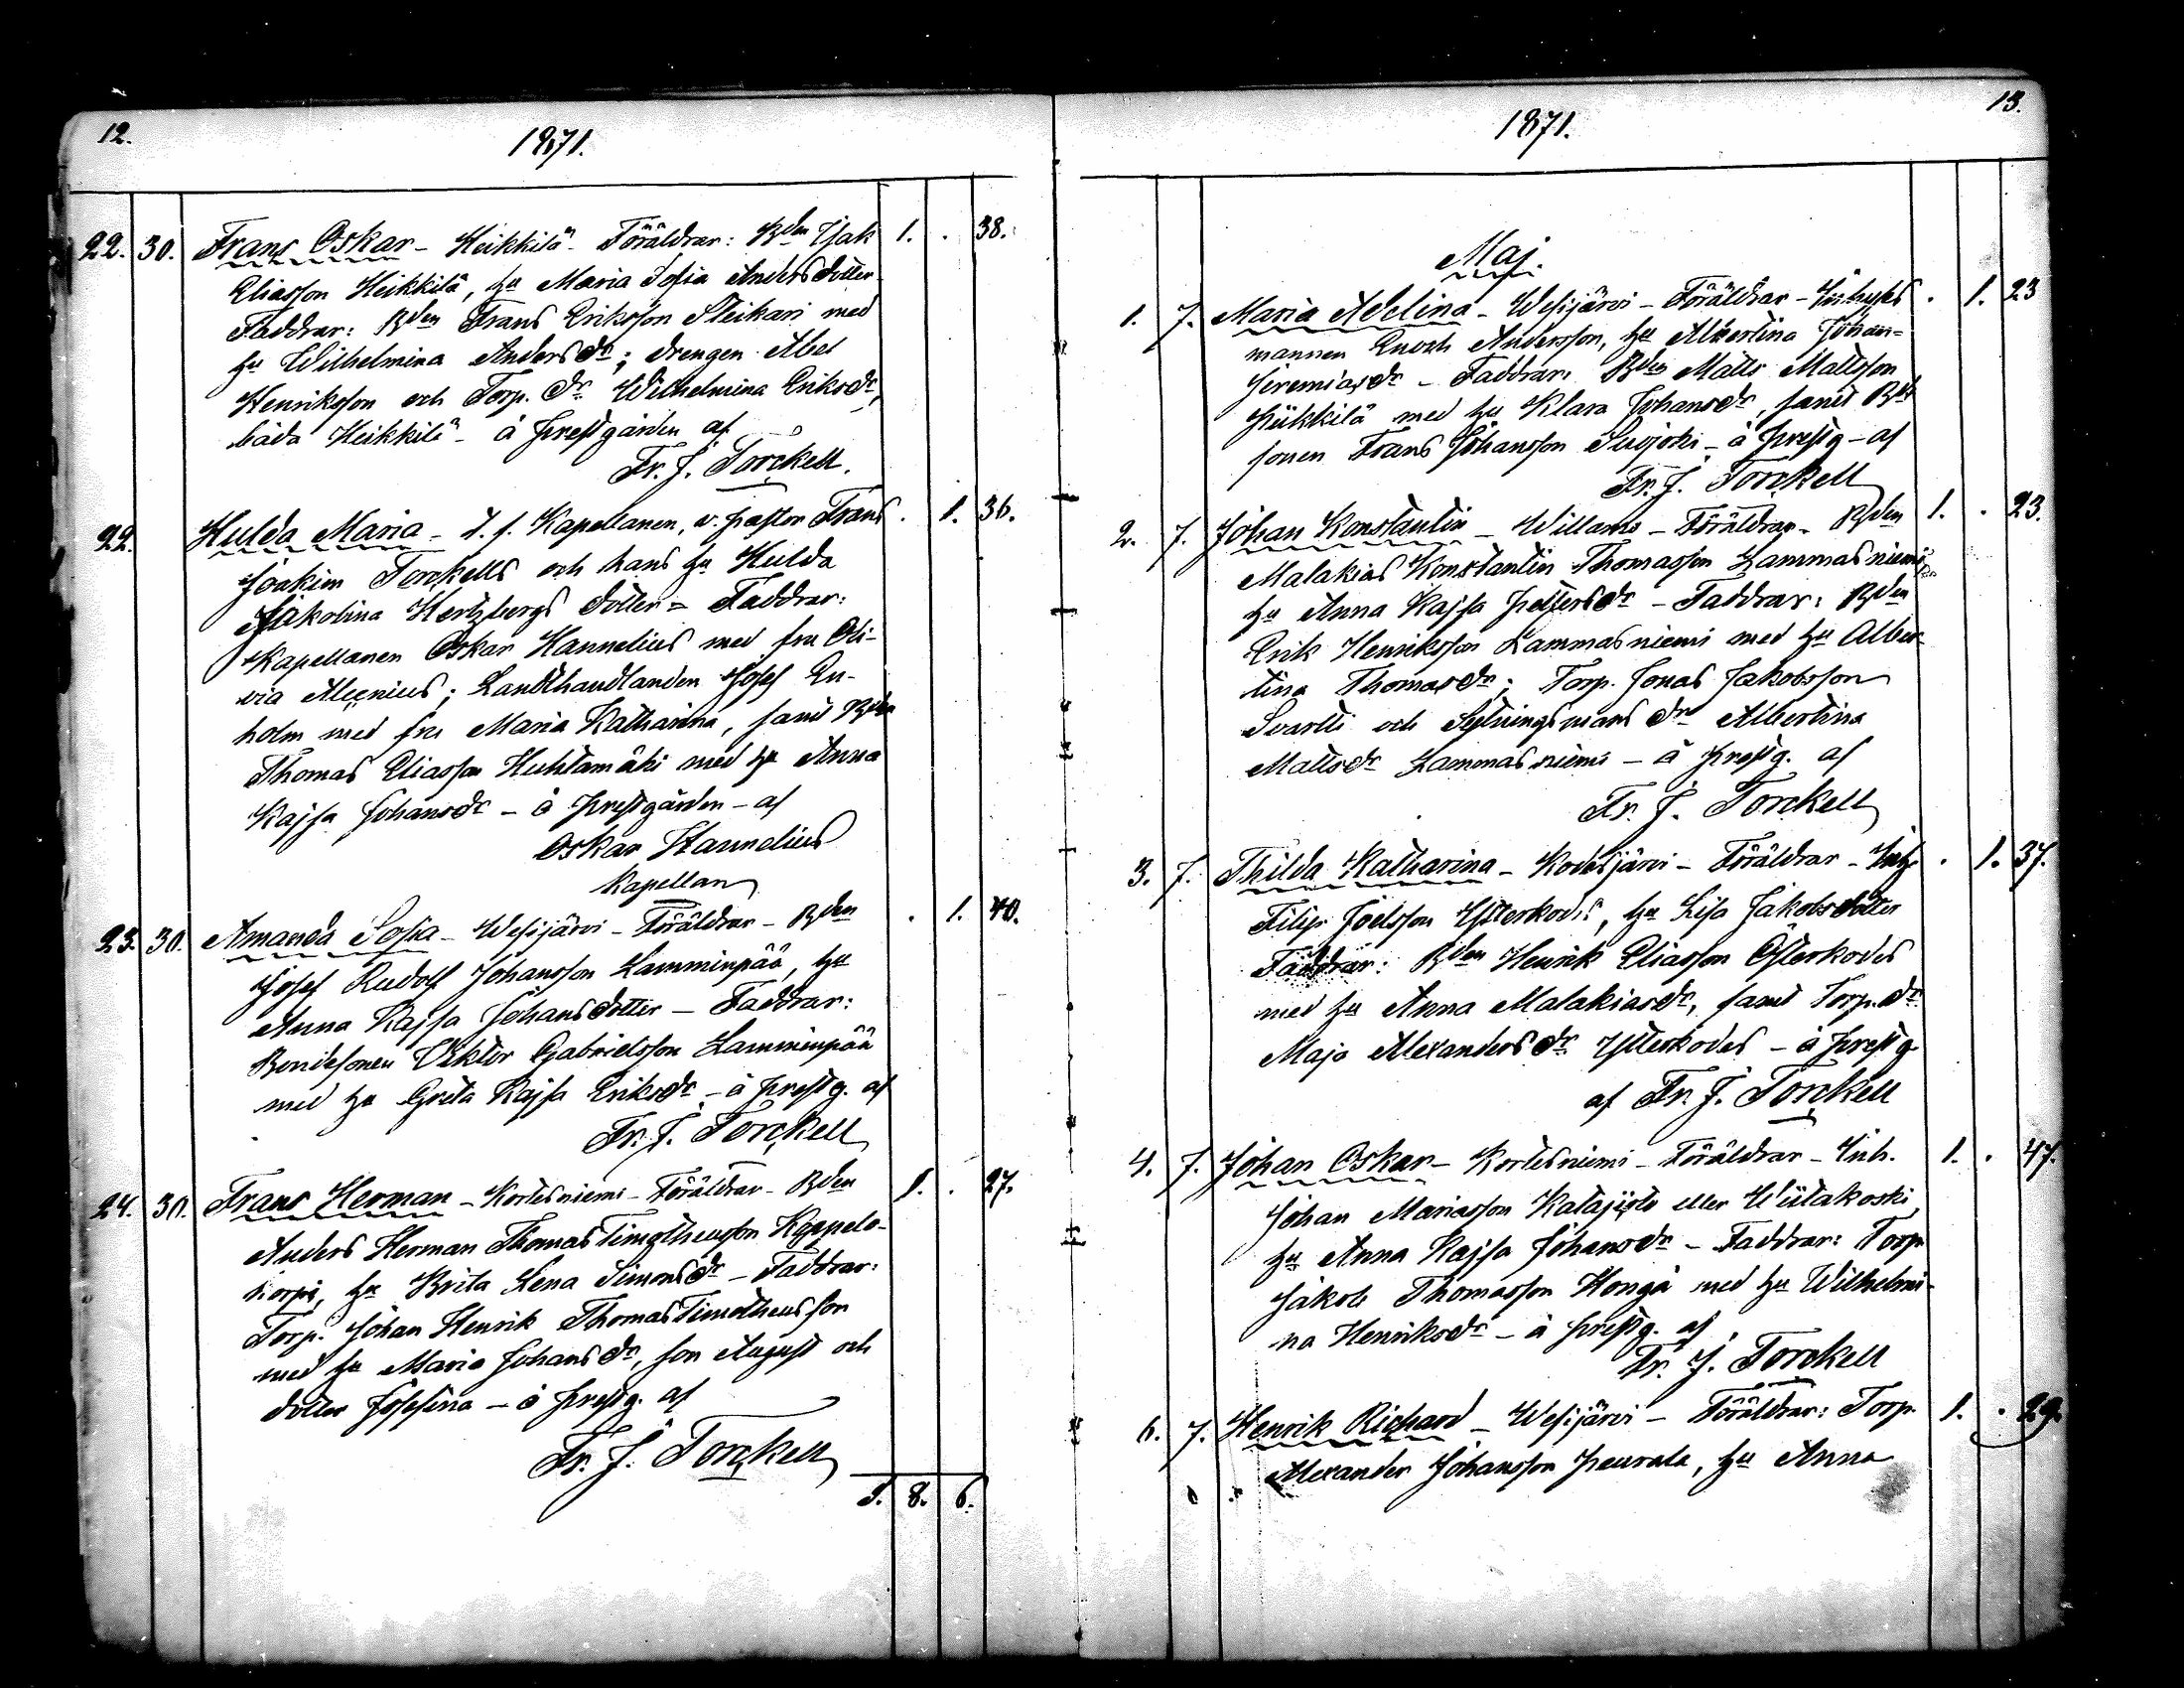 12.
1871.
22. 30. Frans Oskar - Heikkilä - Föräldrar: Bden Isak 1. . 38.
Eliasson Heikkilä, hu Maria Sofia Andersdotter
Faddrar: Bden Frans Eriksson Steikari med
hu Wilhelmina Andersdr; drengen Abel
Henriksson och Torp. dr Wilhelmina Eriksdr,
båda Heikkilä - å prestgården af
Fr. J. Torckell.
22. Hulda Maria - d. f. Kapellanen, v. pastor Frans . 1. 36.
Joakim Torckells och hans hu Hulda
Jakolina Hertzbergs dotter - Faddrar:
Kapellanen Oskar Hannelius med fru Oli-
via Alcenius; Landthandlanden Josef En-
holm med fru Maria Katharina, samt Bden
Thomas Eliasson Huhtamäki med hu Anna
Kajsa Johansdr - å prestgården - af
Oskar Hannelius
Kapellan
23. 30. Amanda Sofia - Wesijärvi - Föräldrar - Bden . 1. 40.
Josef Rudolf Johansson Lamminpää, hu
Anna Kajsa Johansdotter - Faddrar:
Bondesonen Viktor Gabrielsson Lamminpää
med hu Greta Kajsa Eriksdr - å prestg. af
Fr. J. Torckell
24. 30. Frans Herman - Kortesniemi - Föräldrar - Bden 1. . 27.
Anders Herman Thomas Timotheusson Kappelo-
korpi, hu Brita Lena Simonsdr - Faddrar:
Torp. Johan Henrik Thomas Timotheusson
med hu Maria Johansdr, son August och
dotter Josefina - å prestg. af
Fr. J. Torckell
8. 6.
13.
1871.
Maj.
1. 7. Maria Adelina - Wesijärvi - Föräldrar - Inhyses . 1. 23
mannen Enoch Andersson, hu Albertina Johan-
Jeremiasdr - Faddrar: Bden Matts Mattsson
med hu Klara Johansdr, samt Bde
sonen Frans Johansson Suojoki - å prestg - af
Fr. J. Torckell
2. 7. Johan Konstantin - Willamo - Föräldrar - Bden 1. . 23.
Malakias Konstantin Thomasson Lammasniemi
hu Anna Kajsa Pettersdr - Faddrar: Bden
Erik Henriksson Lammasniemi med hu Alber-
tina Thomasdr; Torp. Jonas Jakobsson
Svartti och Sytningsmans dr Albertina
Mattsdr Lammasniemi - å prestg. af
Fr. J. Torckell
3. 7. Thilda Katharina - Kodesjärvi - Föräldrar - Inh. . 1. 37.
Filip Joelsson Ytterkodis, hu Lisa Jakobsdotter
Faddrar: Bden Henrik Eliasson Österkodes
med hu Anna Malakiasdr, samt Torp. dr
Maja Alexandersdr Ytterkodes - å prestg.
af Fr. J. Torckell
4. 7. Johan Oskar - Kortesniemi - Föräldrar - Inh. 1. . 47.
Johan Mariasson Katajisto eller Wiitakoski,
hu Anna Kajsa Johansdr - Faddrar: Torp.
Jakob Thomasson Honga med hu Wilhelmi-
na Henriksdr - å prestg. af
Fr. J. Torckell
7. Henrik Richard - Wesijärvi - Föräldrar: Torp. 1. . 29.
Alexander Johansson Peurala, hu Anna